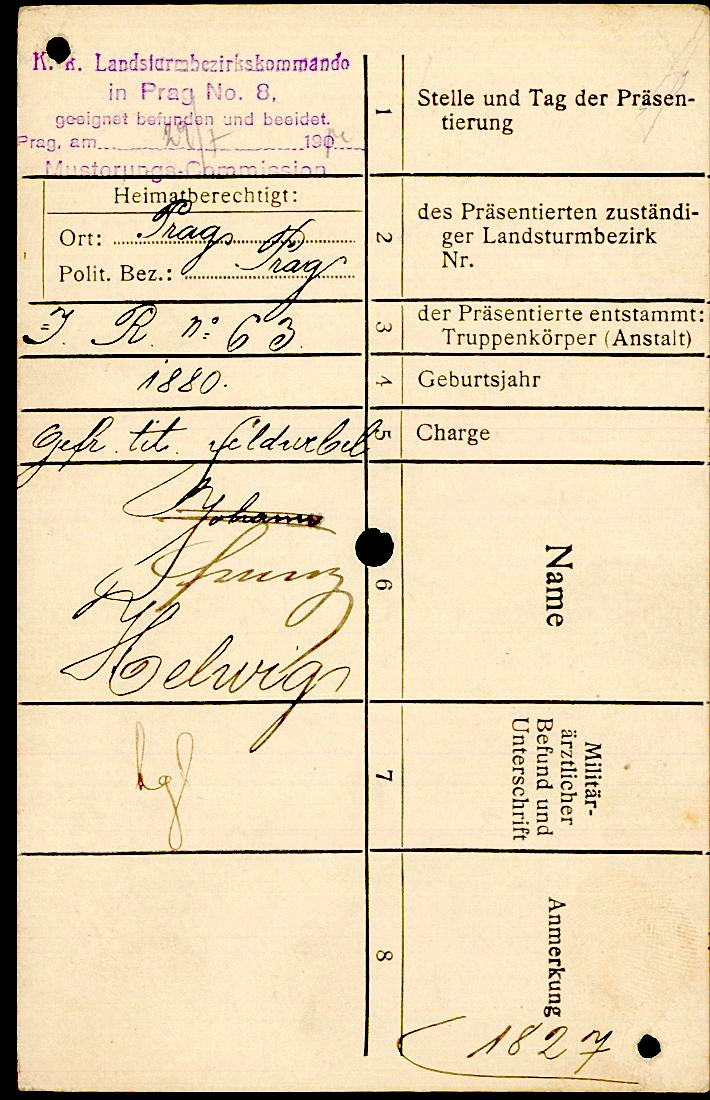 K. k. Landsturmbezirkskommando
in Prag No. 8,
geeignet befunden und beeidet.
Prag, am 29/7 190
Musterungs-Commission
1
Stelle und Tag der Präsen-
tierung
Heimatberechtigt:
Ort: Prag
Polit. Bez.: Prag
2
des Präsentierten zuständi-
ger Landsturmbezirk
Nr.
I. R. No: 63.
3
der Präsentierte entstammt:
Truppenkörper (Anstalt)
1880.
4
Geburtsjahr
Gefr. tit. Feldwebel
5
Charge
Johann
Franz
Helwig
6
Name
7
Militär-
ärztlicher
Befund und
Unterschrift
8
Anmerkung
1827